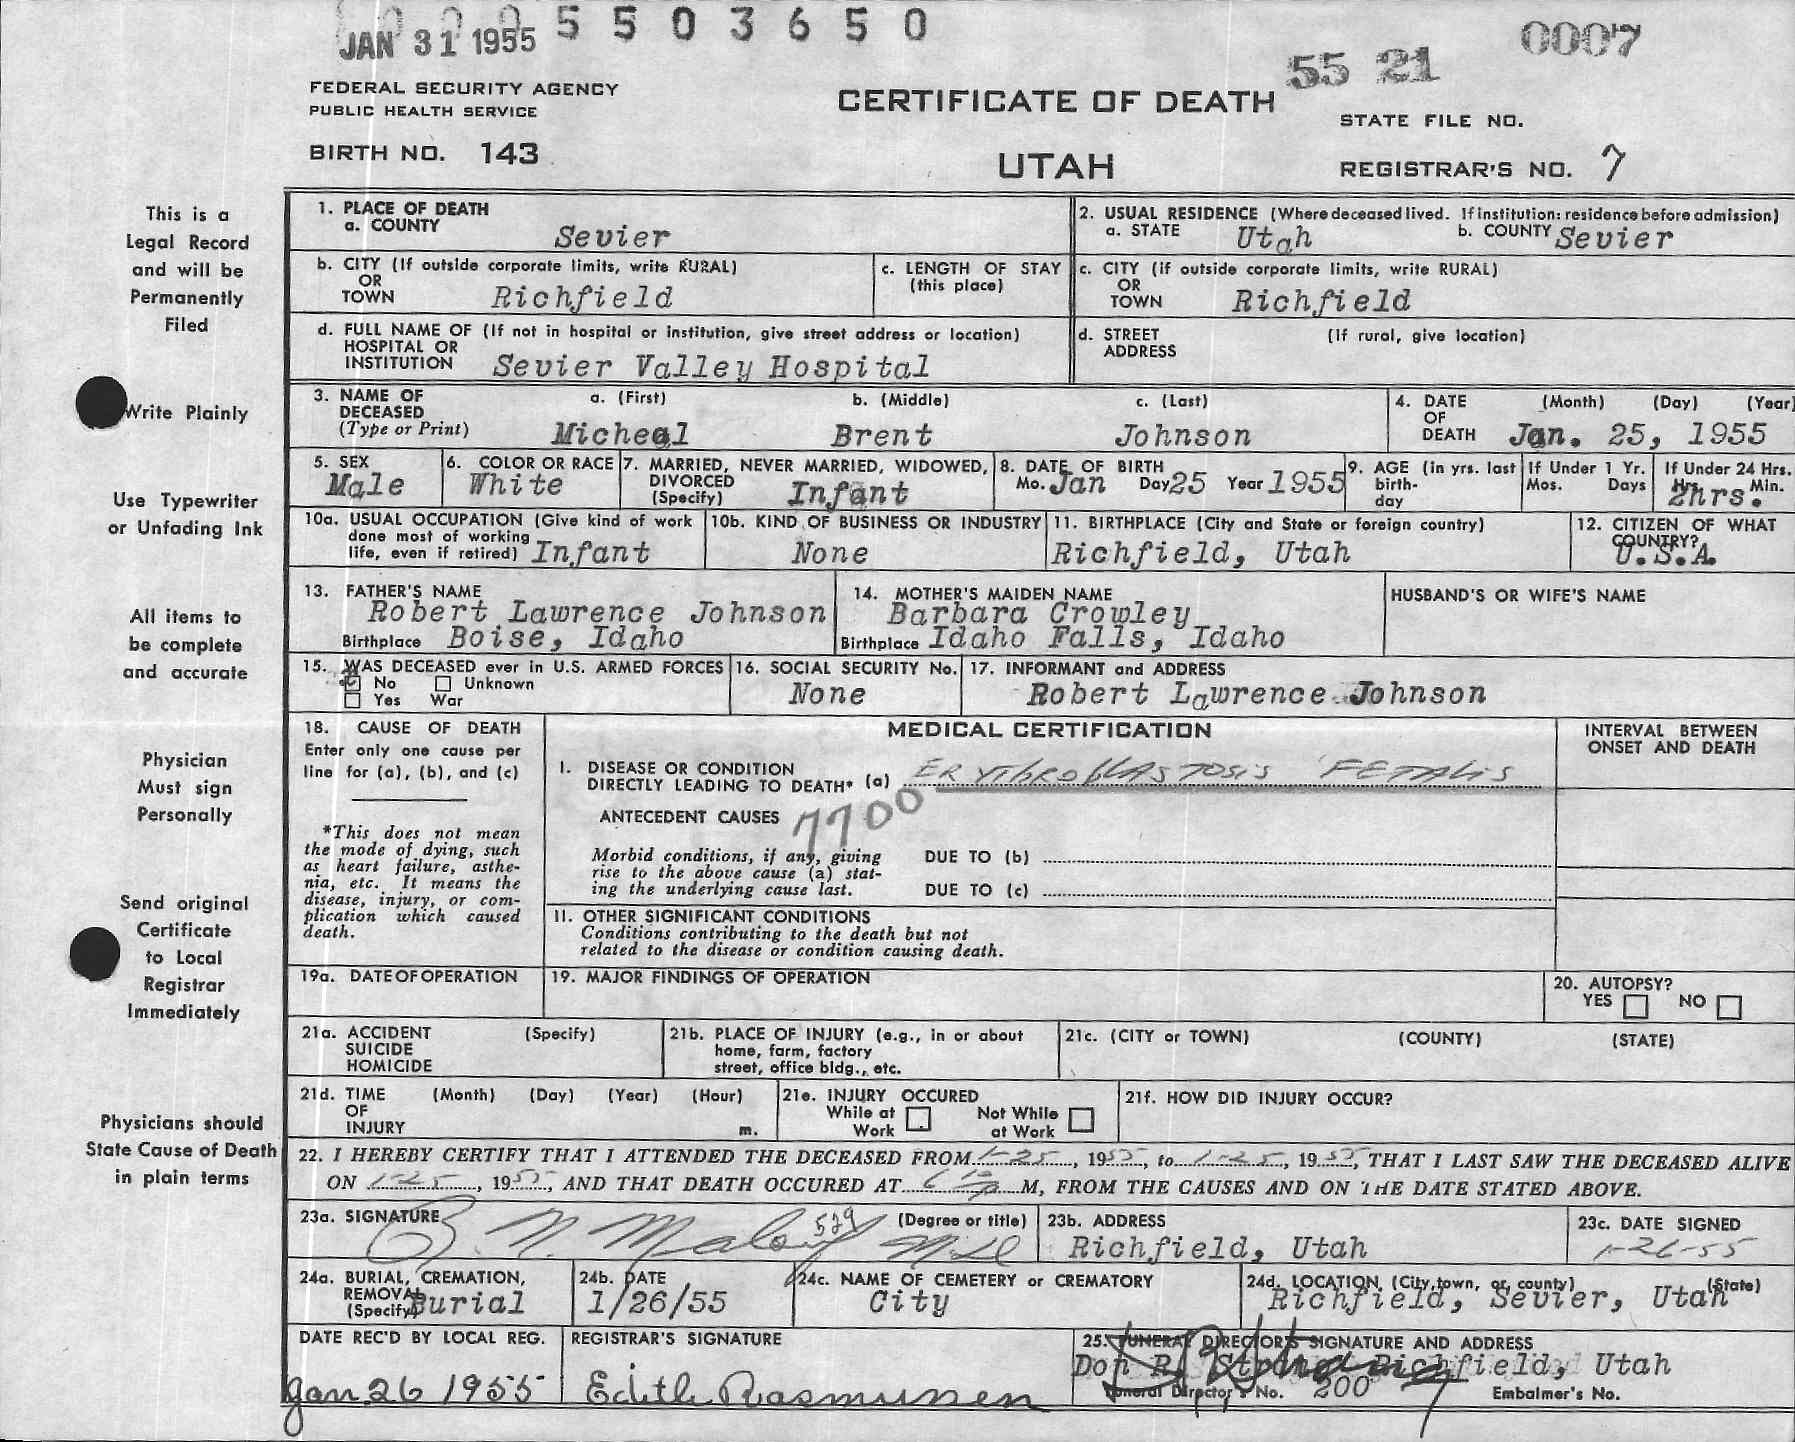 JAN 31 1955 5 5 0 3 6 5 0
0007
55 21
FEDERAL SECURITY AGENCY
PUBLIC HEALTH SERVICE
CERTIFICATE OF DEATH
STATE FILE NO.
BIRTH NO. 143
UTAH
REGISTRAR'S NO. 7
This is a
Legal Record
and will be
Permanently
Filed
Write Plainly
Use Typewriter
or Unfading Ink
All items to
be complete
and accurate
Physician
Must sign
Personally
Send original
Certificate
to Local
Registrar
Immediately
Physicians should
State Cause of Death
in plain terms
1. PLACE OF DEATH
a. COUNTY Sevier
2. USUAL RESIDENCE (Where deceased lived. If institution: residence before admission)
a. STATE Utah b. COUNTY Sevier
b. CITY (If outside corporate limits, write RURAL)
OR
TOWN Richfield
c. LENGTH OF STAY
(this place)
c. CITY (if outside corporate limits, write RURAL)
OR
TOWN Richfield
d. FULL NAME OF (If not in hospital or institution, give street address or location)
HOSPITAL OR
INSTITUTION Sevier Valley Hospital
d. STREET (If rural, give location)
ADDRESS
3. NAME OF
DECEASED
(Type or Print)
a. (First) b. (Middle) c. (Last)
Micheal Brent Johnson
4. DATE (Month) (Day) (Year)
OF
DEATH Jan. 25, 1955
5. SEX
Male
6. COLOR OR RACE
White
7. MARRIED, NEVER MARRIED, WIDOWED,
DIVORCED
(Specify) Infant
8. DATE OF BIRTH
Mo. Jan Day 25 Year 1955
9. AGE (in yrs. last
birth-
day
If Under 1 Yr.
Mos. Days
If Under 24 Hrs.
Hrs. Min.
2hrs.
10a. USUAL OCCUPATION (Give kind of work
done most of working
life, even if retired) Infant
10b. KIND OF BUSINESS OR INDUSTRY
None
11. BIRTHPLACE (City and State or foreign country)
Richfield, Utah
12. CITIZEN OF WHAT
COUNTRY?
U.S.A.
13. FATHER'S NAME
Robert Lawrence Johnson
Birthplace Boise, Idaho
14. MOTHER'S MAIDEN NAME
Barbara Crowley
Birthplace Idaho Falls, Idaho
HUSBAND'S OR WIFE'S NAME
15. WAS DECEASED ever in U.S. ARMED FORCES
No Unknown
Yes War
16. SOCIAL SECURITY No.
None
17. INFORMANT and ADDRESS
Robert Lawrence Johnson
18. CAUSE OF DEATH
Enter only one cause per
line for (a), (b), and (c)
*This does not mean
the mode of dying, such
as heart failure, asthe-
nia, etc. It means the
disease, injury, or com-
plication which caused
death.
MEDICAL CERTIFICATION
INTERVAL BETWEEN
ONSET AND DEATH
I. DISEASE OR CONDITION
DIRECTLY LEADING TO DEATH* (a) ERYthRoblASTOSIS FETALIS
ANTECEDENT CAUSES 7700
Morbid conditions, if any, giving
rise to the above cause (a) stat-
ing the underlying cause last.
DUE TO (b)
DUE TO (c)
II. OTHER SIGNIFICANT CONDITIONS
Conditions contributing to the death but not
related to the disease or condition causing death.
19a. DATE OF OPERATION
19. MAJOR FINDINGS OF OPERATION
20. AUTOPSY?
YES NO
21a. ACCIDENT (Specify)
SUICIDE
HOMICIDE
21b. PLACE OF INJURY (e.g., in or about
home, farm, factory
street, office bldg., etc.
21c. (CITY or TOWN) (COUNTY) (STATE)
21d. TIME (Month) (Day) (Year) (Hour)
OF
INJURY m.
21e. INJURY OCCURED
While at Work Not While at Work
21f. HOW DID INJURY OCCUR?
22. I HEREBY CERTIFY THAT I ATTENDED THE DECEASED FROM 1-25, 1955, to 1-25, 1955, THAT I LAST SAW THE DECEASED ALIVE
ON 1-25, 1955, AND THAT DEATH OCCURED AT M, FROM THE CAUSES AND ON THE DATE STATED ABOVE.
23a. SIGNATURE (Degree or title)
529 MD
23b. ADDRESS
Richfield, Utah
23c. DATE SIGNED
1-26-55
24a. BURIAL, CREMATION,
REMOVAL
(Specify) Burial
24b. DATE
1/26/55
24c. NAME OF CEMETERY or CREMATORY
City
24d. LOCATION (City, town, or county) (State)
Richfield, Sevier, Utah
DATE REC'D BY LOCAL REG.
Jan 26 1955
REGISTRAR'S SIGNATURE
Edith Rasmussen
25. FUNERAL DIRECTOR'S SIGNATURE AND ADDRESS
Don R. Richfield, Utah
Funeral Director's No. 200 Embalmer's No.